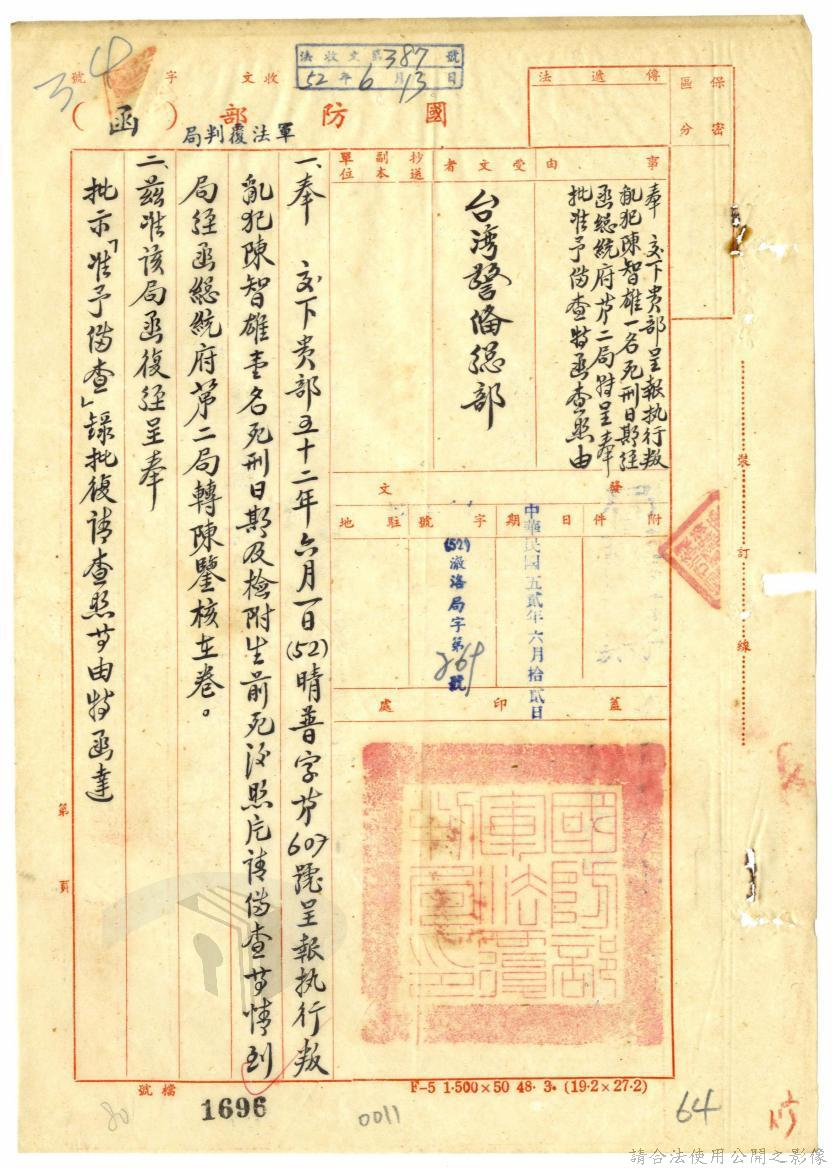 保密區分
傳遞法
收文 字 號
法收文第387號
52年6月13日
34
國防部(函)
軍法覆判局
事由
奉 交下貴部呈報執行叛
亂犯陳智雄一名死刑日期經
函總統府第二局特呈奉
批准予備查特函查照由
受文者
台灣警俻總部
抄送副本單位
發文
附件
日期
中華民國五貳年六月拾貳日
字號
(52)澈洛局字第
號
駐地
蓋印處
國防部
軍法覆
判局印
一、奉 交下貴部五十二年六月一日(52)晴普字第607號呈報執行叛
亂犯陳智雄壹名死刑日期及檢附生前死後照片請備查等情到
局經函總統府第二局轉陳鑒核在卷。
二、茲准該局函復經呈奉
批示「准予備查」錄批復請查照等由特函達
裝
訂
線
第 頁
檔號
1696
0011
F-5 1·500×50 48·3·(19·2×27·2)
64
80
請合法使用公開之影像